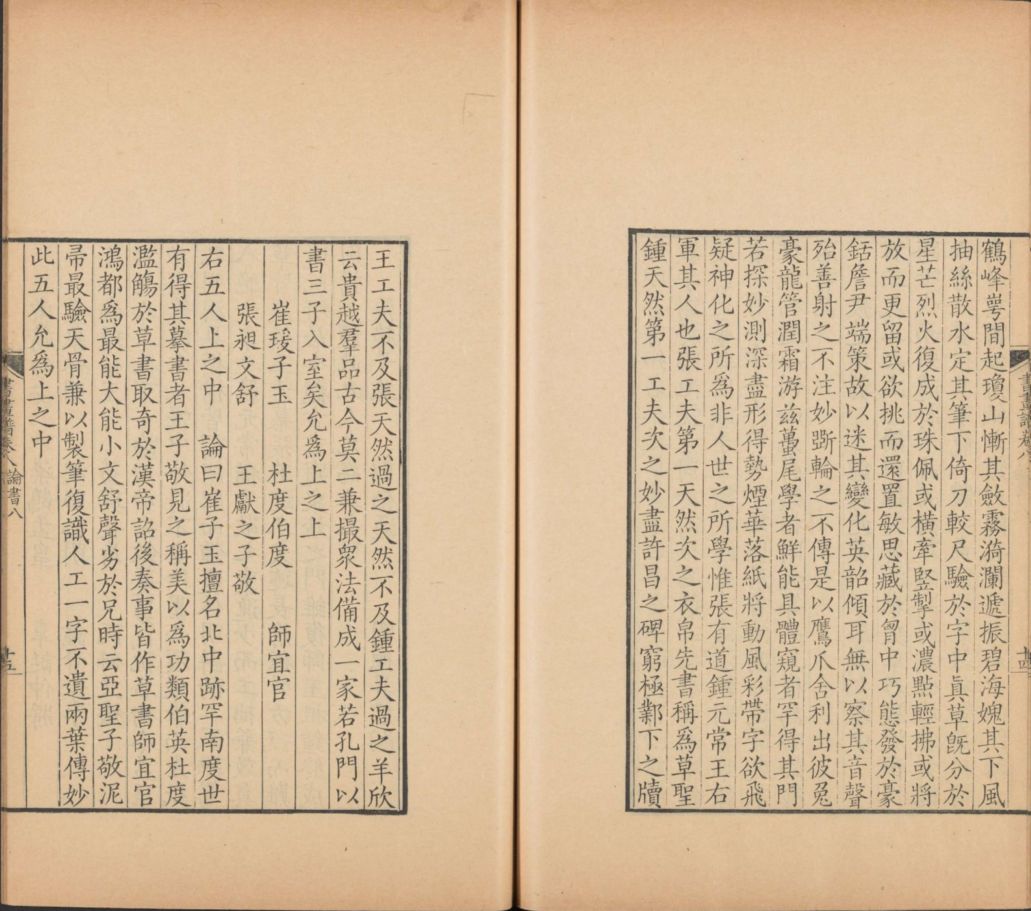 鶴峰萼間起瓊山慚其斂霧漪瀾遞振碧海媿其下風
抽絲散水定其筆下倚刀較尺驗於字中眞草旣分於
星芒烈火復成於珠佩或橫牽竪掣或濃點輕拂或將
放而更留或欲挑而還置敏思藏於胷中巧態發於豪
銛詹尹端策故以迷其變化英韶傾耳無以察其音聲
殆善射之不注妙斲輪之不傳是以鷹爪含利出彼兔
豪龍管潤霜游兹蠆尾學者鮮能具體窺者罕得其門
若探妙測深盡形得勢煙華落紙將動風彩帶字欲飛
疑神化之所爲非人世之所學惟張有道鍾元常王右
軍其人也張工夫第一天然次之衣帛先書稱爲草聖
鍾天然第一工夫次之妙盡許昌之碑窮極鄴下之牘
書畫譜卷八
十四
王工夫不及張天然過之天然不及鍾工夫過之羊欣
云貴越羣品古今莫二兼撮衆法備成一家若孔門以
書三子入室矣允爲上之上
崔瑗子玉 杜度伯度 師宜官
張昶文舒 王獻之子敬
右五人上之中 論曰崔子玉擅名北中跡罕南度世
有得其摹書者王子敬見之稱美以爲功類伯英杜度
濫觴於草書取奇於漢帝詔後奏事皆作草書師宜官
鴻都爲最能大能小文舒聲劣於兄時云亞聖子敬泥
帚最驗天骨兼以製筆復識人工一字不遺兩葉傳妙
此五人允爲上之中
書畫譜卷八 論書八
十五